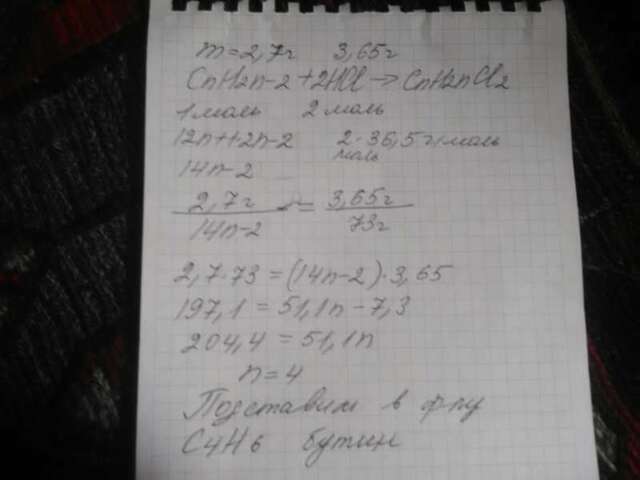 m=2,7г 3,65г
CnH2n-2 +2HCl → CnH2nCl2
1 моль 2 моль
12n+2n-2 2·36,5 г/моль
моль
14n-2
2,7г = 3,65г
14n-2 73г
2,7·73 = (14n-2)·3,65
197,1 = 51,1n - 7,3
204,4 = 51,1n
n=4
Подставим в ф-лу
C4H6 бутин